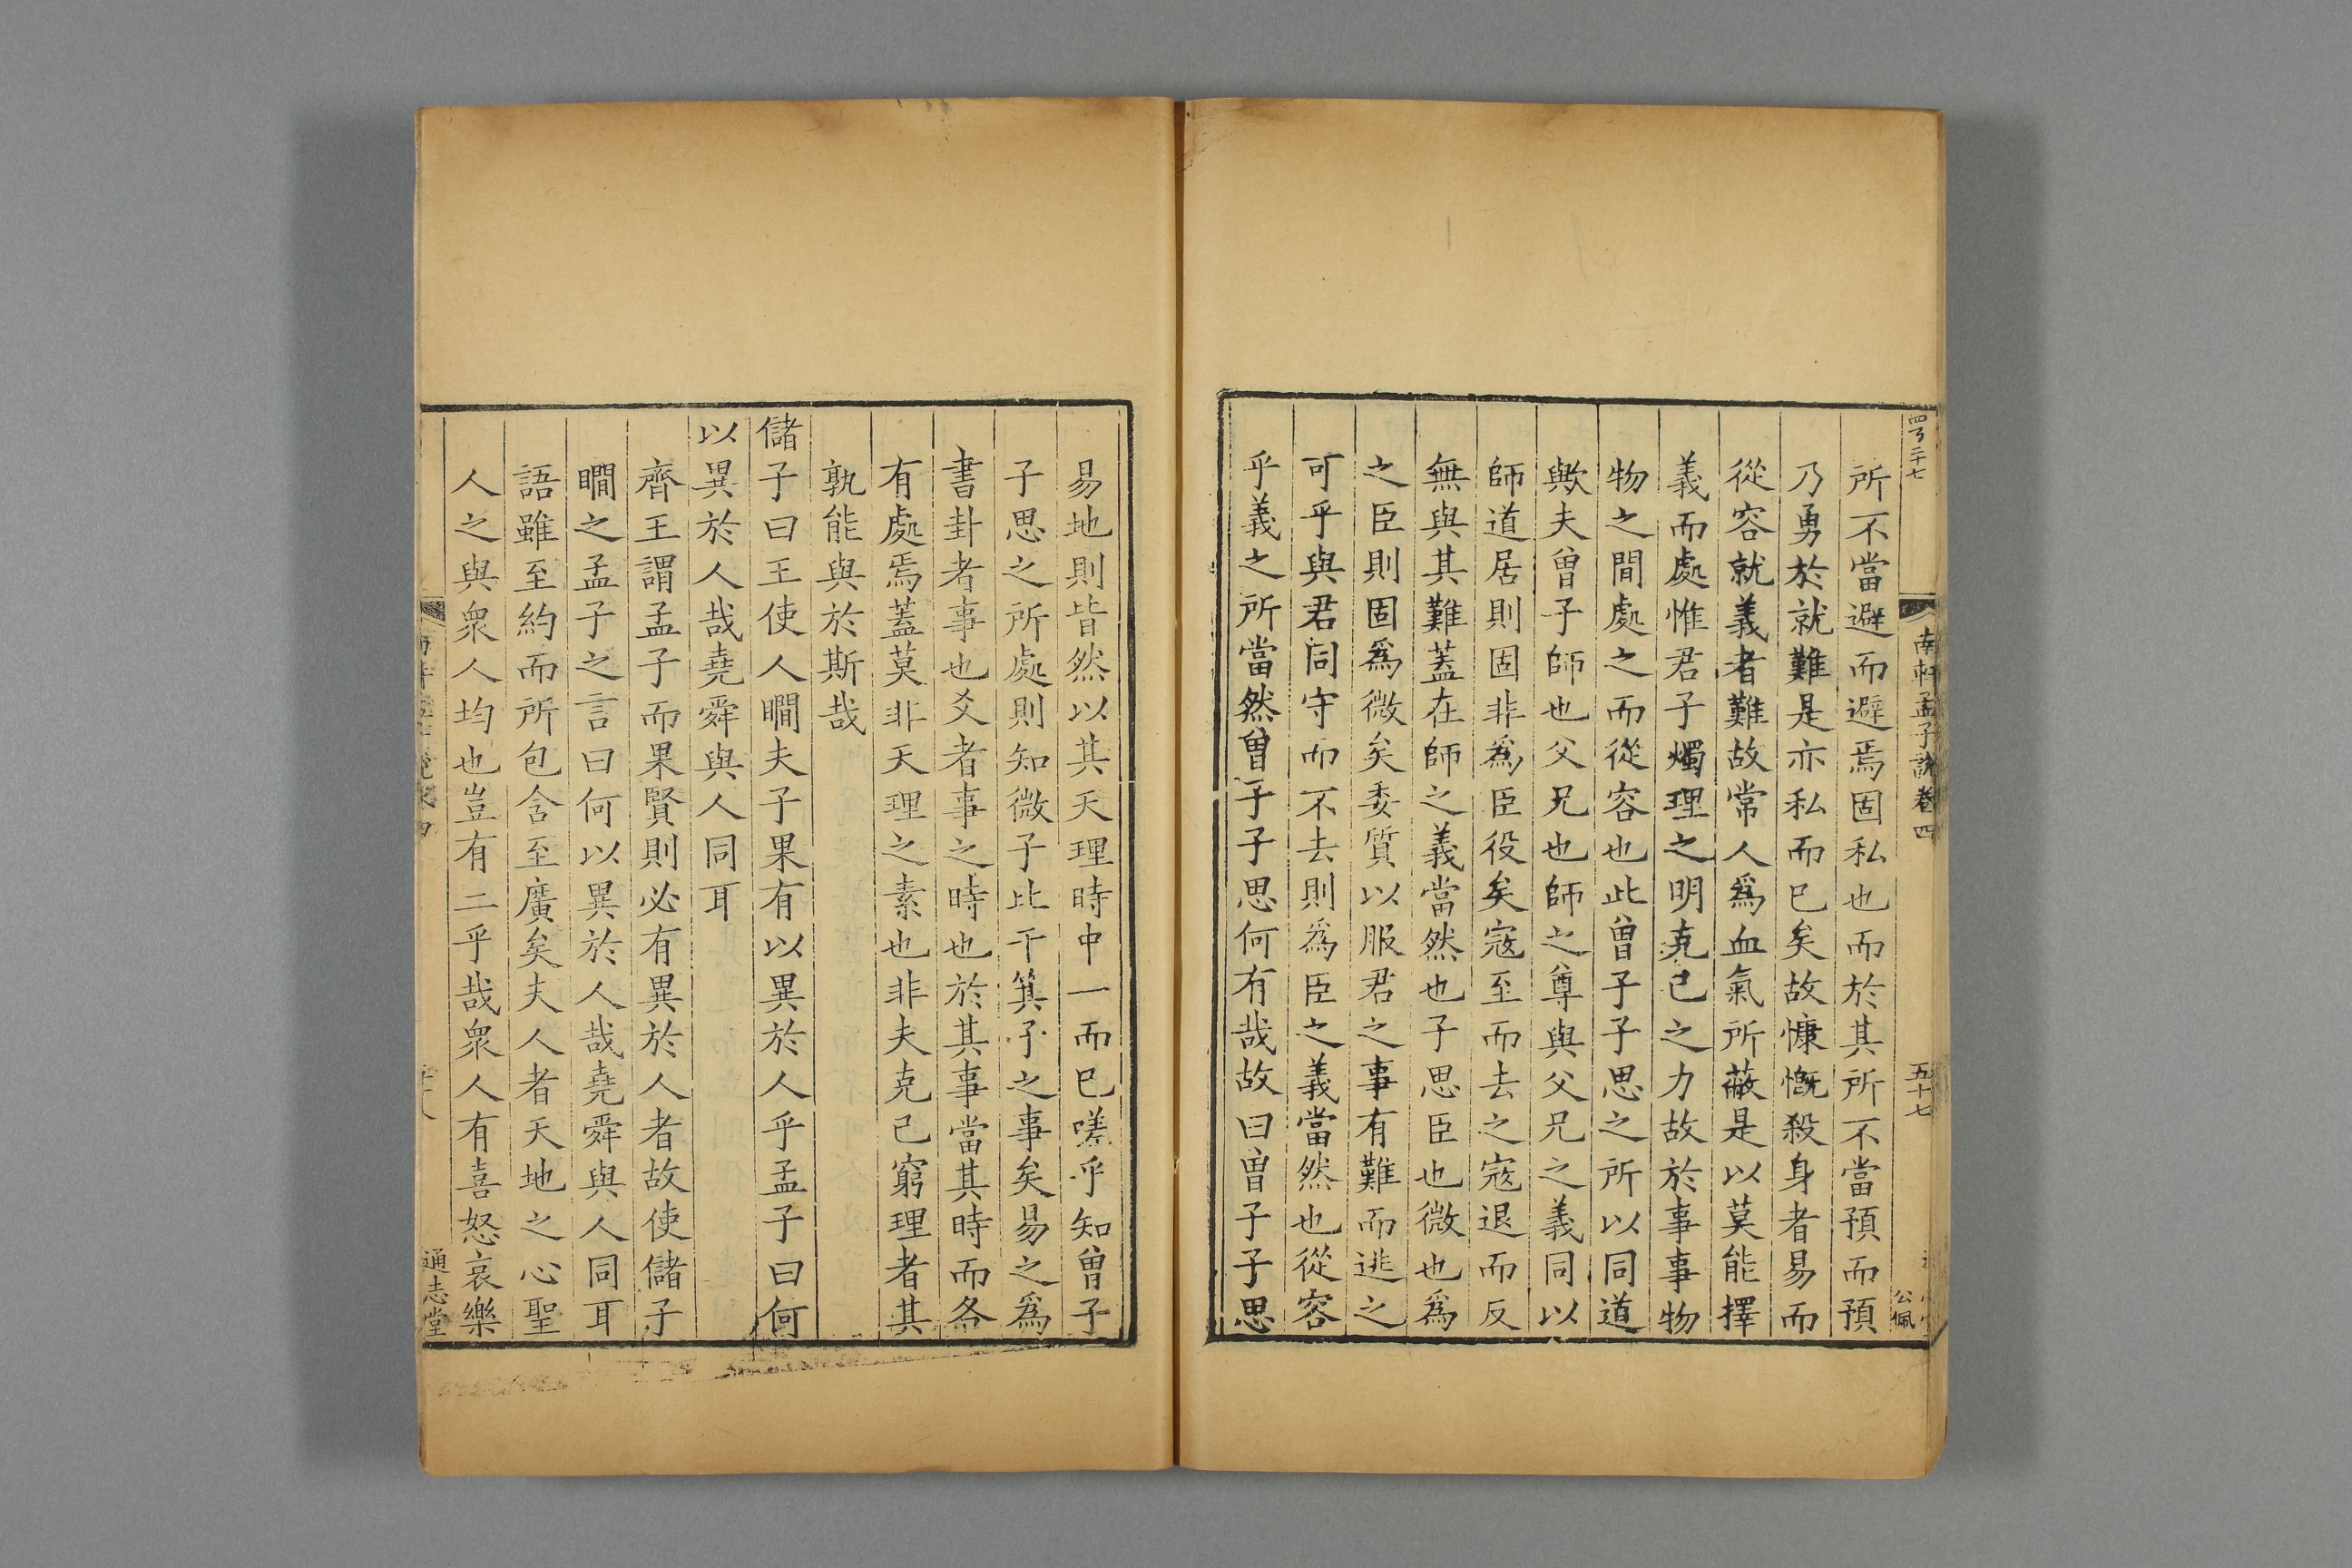 南軒孟子說卷四
五十七
公佩
所不當避而避焉固私也而於其所不當預而預
乃勇於就難是亦私而已矣故慷慨殺身者易而
從容就義者難故常人爲血氣所蔽是以莫能擇
義而處惟君子燭理之明克己之力故於事事物
物之間處之而從容也此曾子子思之所以同道
歟夫曾子師也父兄也師之尊與父兄之義同以
師道居則固非爲臣役矣寇至而去之寇退而反
無與其難蓋在師之義當然也子思臣也微也爲
之臣則固爲微矣委質以服君之事有難而逃之
可乎與君同守而不去則爲臣之義當然也從容
乎義之所當然曾子子思何有哉故曰曾子子思
易地則皆然以其天理時中一而已嗟乎知曾子
子思之所處則知微子比干箕子之事矣易之爲
書卦者事也爻者事之時也於其事當其時而各
有處焉蓋莫非天理之素也非夫克己窮理者其
孰能與於斯哉
儲子曰王使人瞷夫子果有以異於人乎孟子曰何
以異於人哉堯舜與人同耳
齊王謂孟子而果賢則必有異於人者故使儲子
瞷之孟子之言曰何以異於人哉堯舜與人同耳
語雖至約而所包含至廣矣夫人者天地之心聖
人之與衆人均也豈有二乎哉衆人有喜怒哀樂
通志堂